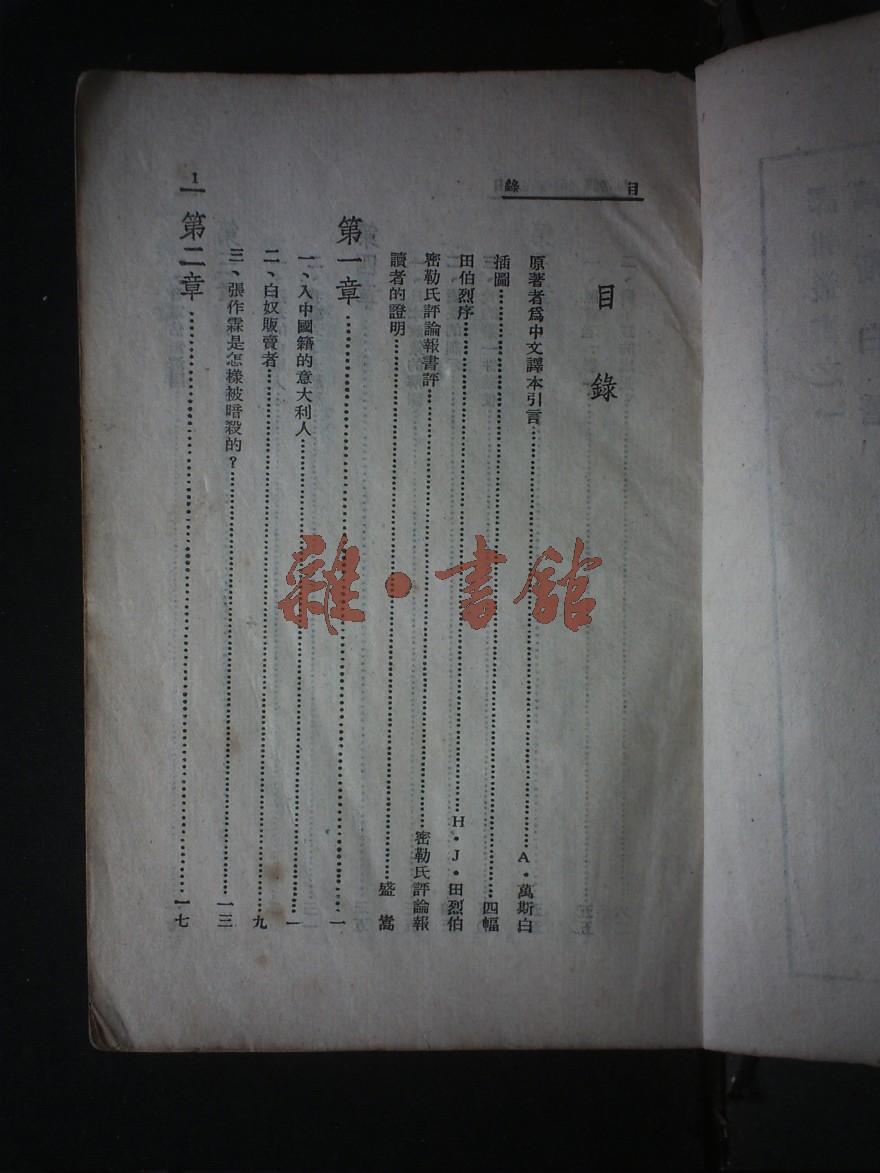 目錄
目錄
原著者爲中文譯本引言……A·萬斯白
插圖……四幅
田伯烈序……H·J·田烈伯
密勒氏評論報書評……密勒氏評論報
讀者的證明……盛嵩
第一章……一
一、入中國籍的意大利人……一
二、白奴販賣者……九
三、張作霖是怎樣被暗殺的?……一三
第二章……一七
1
雜·書館